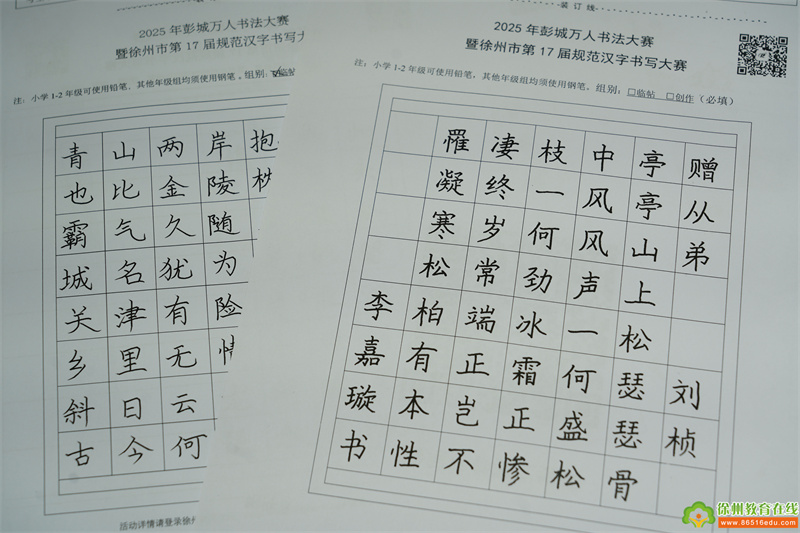 装订线
2025 年彭城万人书法大赛
暨徐州市第 17 届规范汉字书写大赛
注：小学 1-2 年级可使用铅笔、其他年级组均须使用钢笔。组别：☑临帖
抱
岸陵随为险
两金久犹有无云何
山比气名津里日今
青也霸城关乡斜古
活动详情请登录徐
装订线
2025 年彭城万人书法大赛
暨徐州市第 17 届规范汉字书写大赛
注：小学 1-2 年级可使用铅笔，其他年级组均须使用钢笔。组别：□临帖 □创作（必填）
赠从弟刘桢
亭亭山上松瑟瑟骨
中风风声一何盛松
枝一何劲冰霜正惨
凄终岁常端正岂不
罹凝寒松柏有本性
李嘉璇书
徐州教育在线
www.86516edu.com